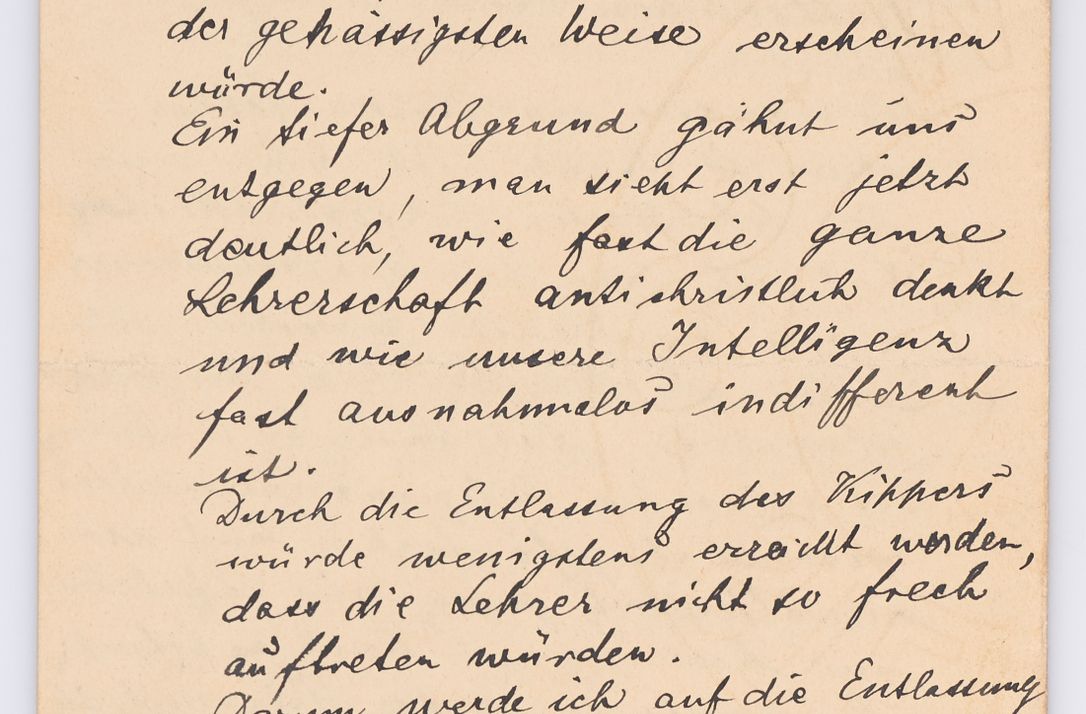 der gehässigsten Weise erscheinen
würde.
Ein tiefer Abgrund gähnt uns
entgegen, man sieht erst jetzt
deutlich, wie fast die ganze
Lehrerschaft antichristlich denkt
und wie unsere Intelligenz
fast ausnahmslos indifferent
ist.
Durch die Entlassung des Kippers
würde wenigstens erreicht werden,
dass die Lehrer nicht so frech
auftreten würden.
Darum werde ich auf die Entlassung